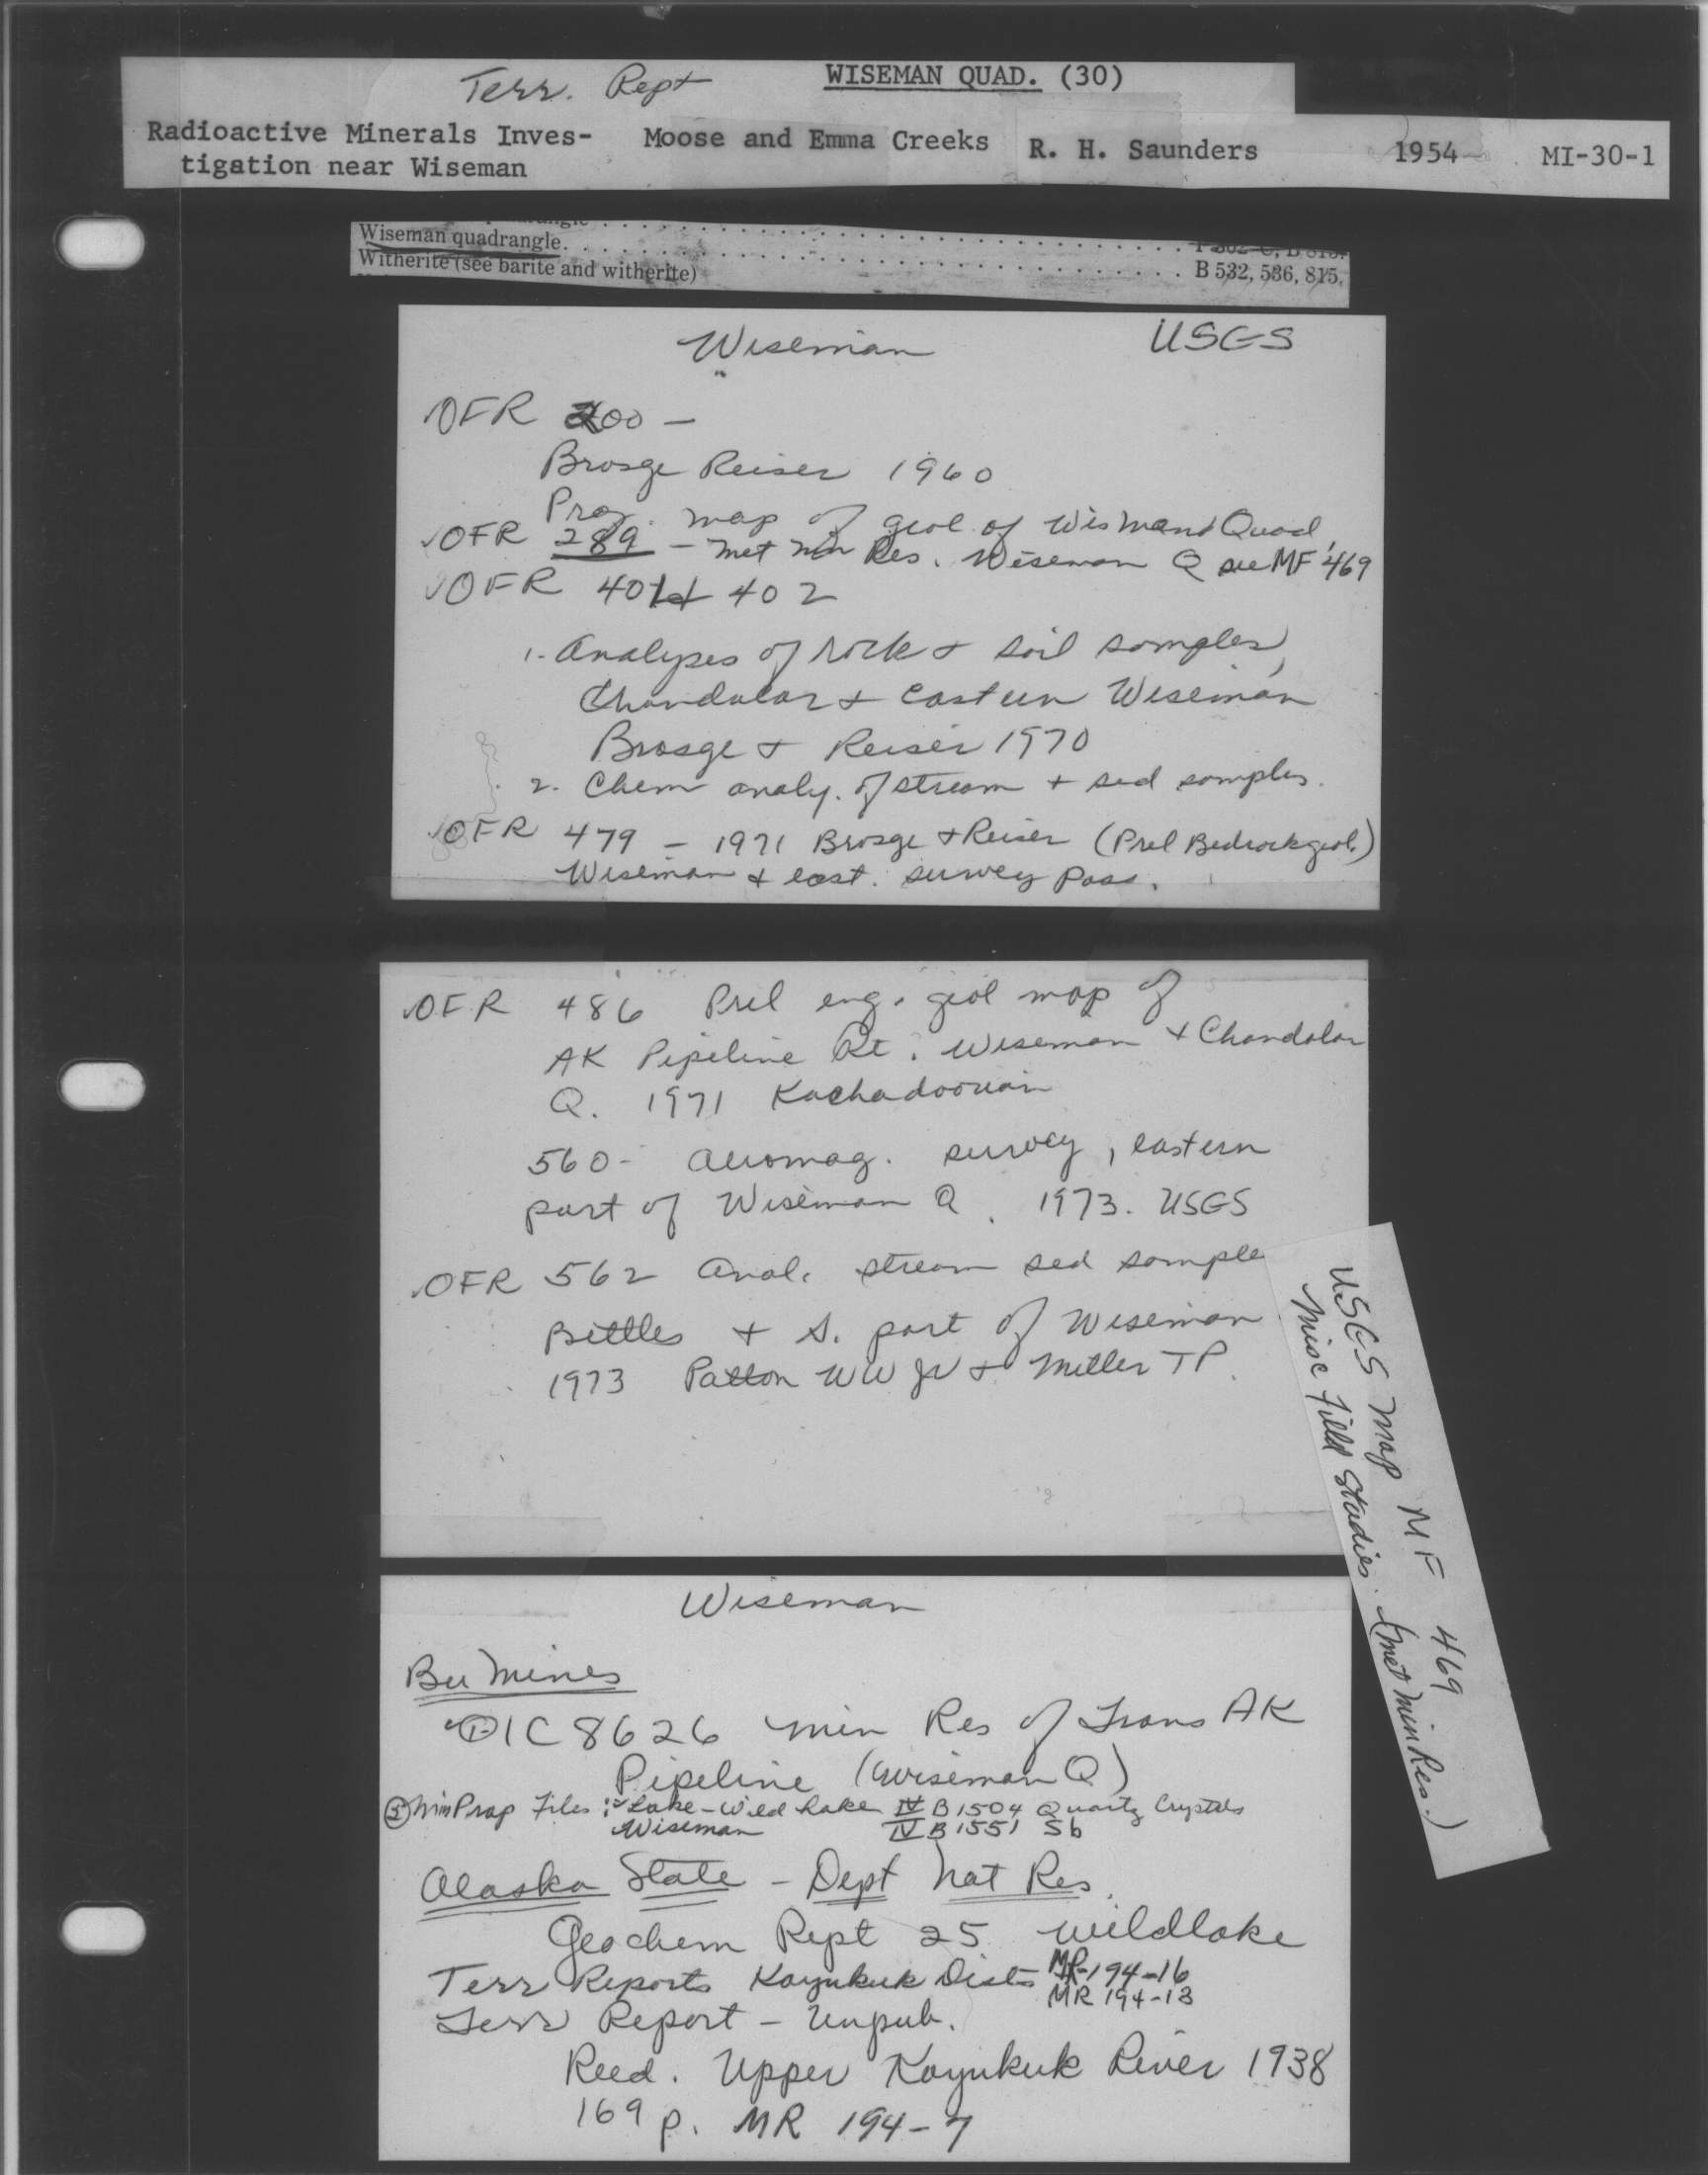 Terr. Rept
WISEMAN QUAD. (30)
Radioactive Minerals Inves- Moose and Emma Creeks R. H. Saunders 1954 MI-30-1
tigation near Wiseman
Wiseman quadrangle.
Witherite (see barite and witherite) B 532, 536, 815.
Wiseman USGS
OFR 200 -
Brosge Reiser 1960
Prog. map of geol of Wiseman Quad,
OFR 289 - met min Res. Wiseman Q see MF 469
OFR 401 + 402
1. Analyses of rock + soil samples,
Chandalar + eastern Wiseman
Brosge + Reiser 1970
2. Chem analy. of stream + sed samples.
OFR 479 - 1971 Brosge + Reiser (Prel Bedrock geol.)
Wiseman + east. survey Pass.
OFR 486 Prel eng. geol map of
AK Pipeline Rt. Wiseman + Chandalar
Q. 1971 Kachadoorian
560- aeromag. survey, eastern
part of Wiseman Q. 1973. USGS
OFR 562 anal. stream sed sample
Bettles + S. part of Wiseman
1973 Patton WW Jr + Miller TP.
USGS Map MF 469
Misc Field Studies. (met min Res.)
Wiseman
Bu Mines
① IC 8626 min Res of Trans AK
Pipeline (Wiseman Q)
Min Prop Files: Lake - Wild Lake IV B 1504 Quartz Crystals
Wiseman IV B 1551 Sb
Alaska State - Dept Nat Res.
Geochem Rept 25 wildlake
Terr Reports Koyukuk Dist MR-194-16
MR 194-13
Terr Report - Unpub.
Reed. Upper Koyukuk River 1938
169 p. MR 194-7